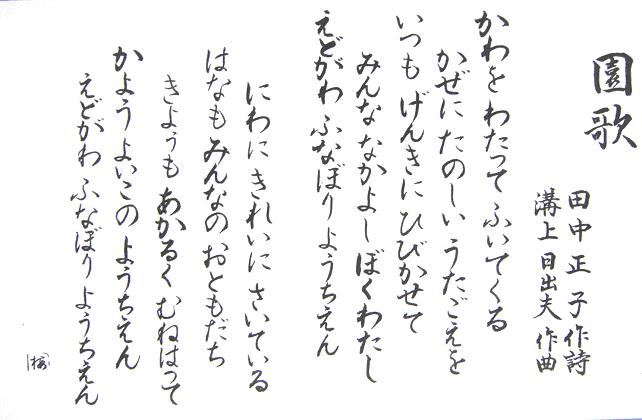 園歌
田中正子 作詩
溝上日出夫 作曲
かわを わたって ふいてくる
かぜに たのしい うたごえを
いつも げんきに ひびかせて
みんな なかよし ぼくわたし
えどがわ ふなぼり ようちえん
にわに きれいに さいている
はなも みんなの おともだち
きょうも あかるく むねはって
かよう よいこの ようちえん
えどがわ ふなぼり ようちえん